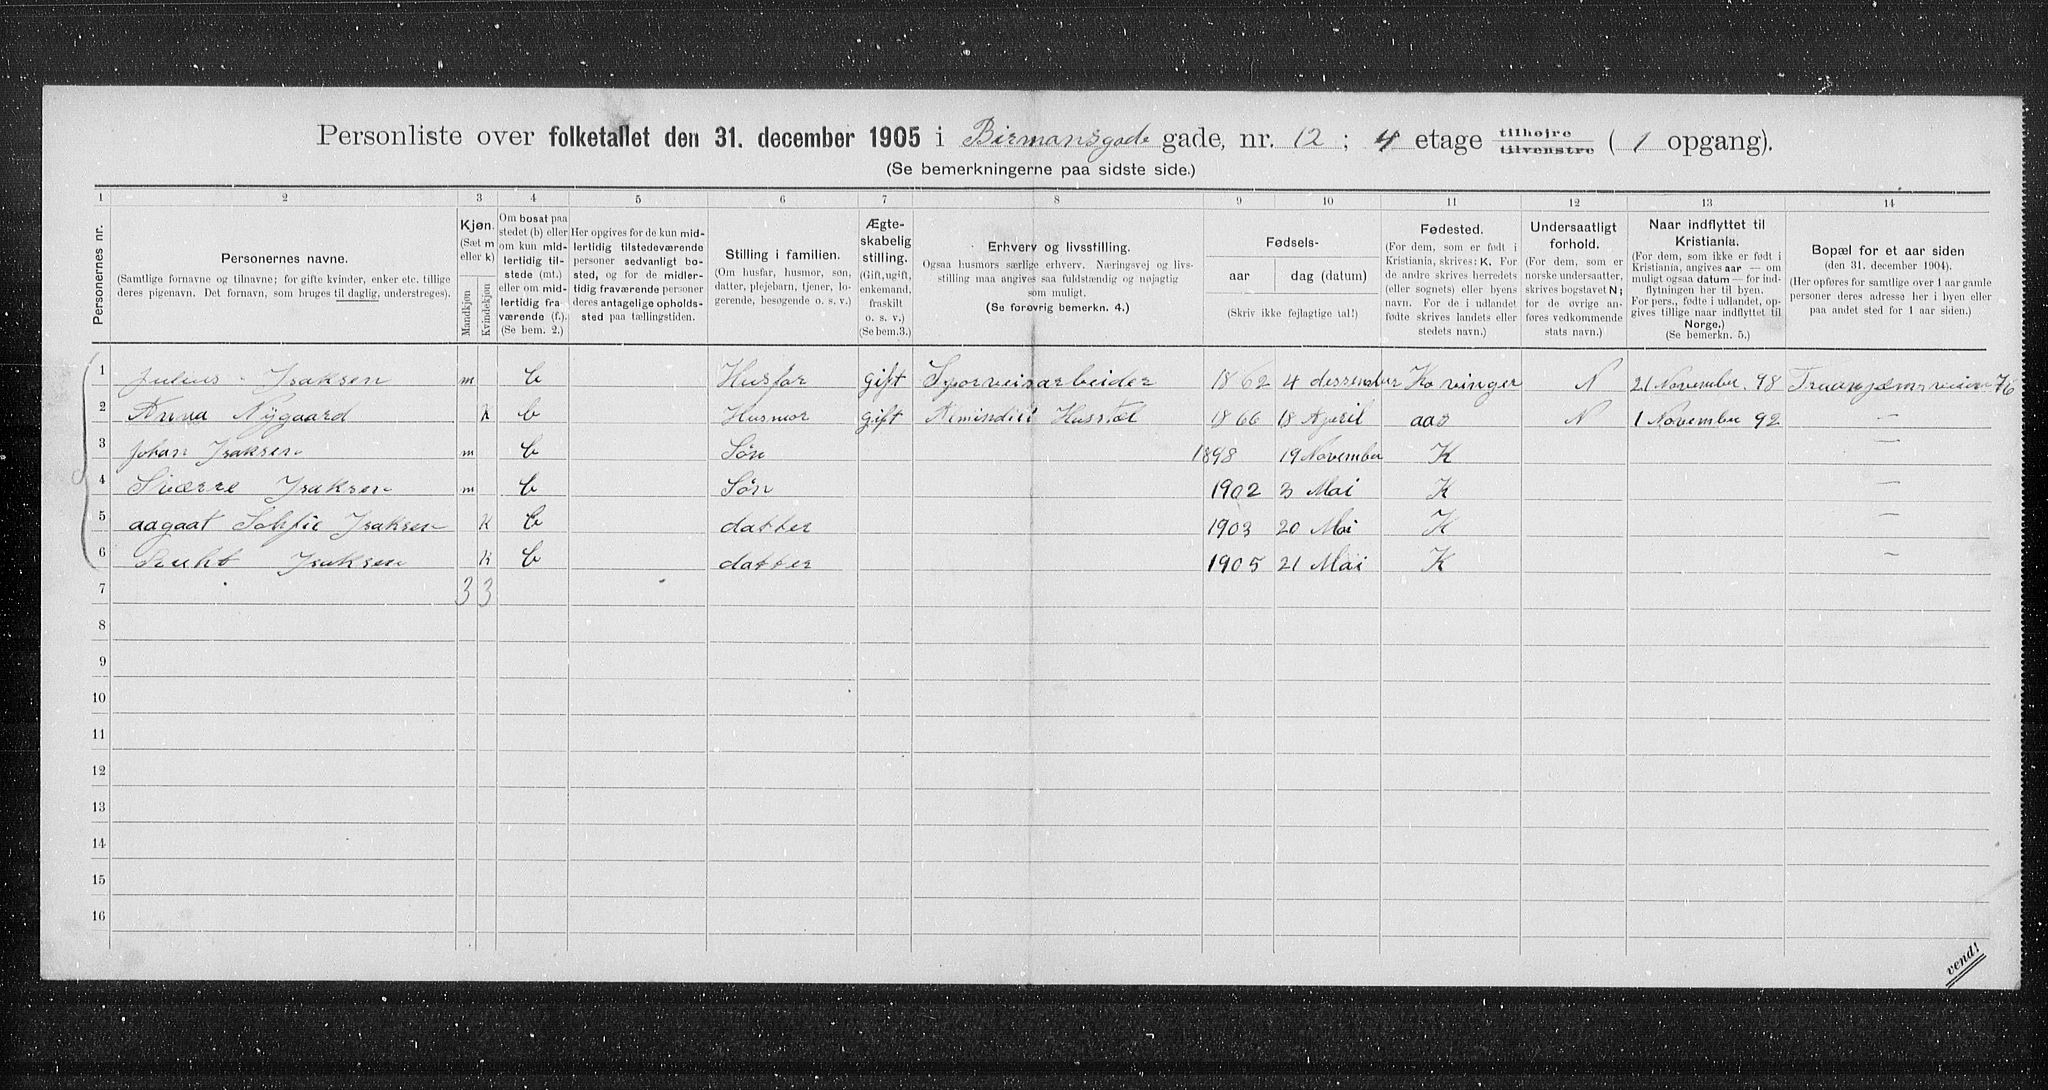 Personliste over folketallet den 31. december 1905 i Birmansgade gade, nr. 12; 4 etage tilhøjre tilvenstre (1 opgang).
(Se bemerkningerne paa sidste side.)
1 2 3 4 5 6 7 8 9 10 11 12 13 14
Personernes nr.
Personernes navne.
(Samtlige fornavne og tilnavne; for gifte kvinder, enker etc. tillige
deres pigenavn. Det fornavn, som bruges til daglig, understreges).
Kjøn.
(Sæt m
eller k)
Mandkjøn
Kvindekjøn
Om bosat paa
stedet (b) eller
om kun mid-
lertidig til-
stede (mt.)
eller om mid-
lertidig fra-
værende (f.).
(Se bem. 2.)
Her opgives for de kun mid-
lertidig tilstedeværende
personer sedvanligt bo-
sted, og for de midler-
tidig fraværende personer
deres antagelige opholds-
sted paa tællingstiden.
Stilling i familien.
(Om husfar, husmor, søn,
datter, plejebarn, tjener, lo-
gerende, besøgende o. s. v.)
Ægte-
skabelig
stilling.
(Gift, ugift,
enkemand,
fraskilt
o. s. v.)
(Se bem.3.)
Erhverv og livsstilling.
Ogsaa husmors særlige erhverv. Næringsvej og livs-
stilling maa angives saa fuldstændig og nøjagtig
som muligt.
(Se forøvrig bemerkn. 4.)
Fødsels-
aar
dag (datum)
(Skriv ikke fejlagtige tal!)
Fødested.
(For dem, som er født i
Kristiania, skrives: K. For
de andre skrives herredets
(eller sognets) eller byens
navn. For de i udlandet
fødte skrives landets eller
stedets navn.)
Undersaatligt
forhold.
(For dem, som er
norske undersaatter,
skrives bogstavet N;
for de øvrige an-
føres vedkommende
stats navn.)
Naar indflyttet til
Kristiania.
(For dem, som ikke er født i
Kristiania, angives aar — om
muligt ogsaa datum — for ind-
flytningen her til byen.
For pers., fødte i udlandet, op-
gives tillige naar indflyttet til
Norge.)
(Se bemerkn. 5.)
Bopæl for et aar siden
(den 31. december 1904).
(Her opføres for samtlige over 1 aar gamle
personer deres adresse her i byen eller
paa andet sted for 1 aar siden.)
1 Julius Isaksen m b Husfar gift Sporveisarbeider 1862 4 dessember Kovinger N 21 November 98 Traanjemsveien 76
2 Anna Nygaard k b Husmor gift Almindili Husstel 1866 18 April aas N 1 November 92 —
3 Johan Isaksen m b Søn 1898 19 November K —
4 Sværre Isaksen m b Søn 1902 3 Mai K —
5 aagaat Sohfie Isaksen k b datter 1903 20 Mai K —
6 Ruht Isaksen k b datter 1905 21 Mai K —
7 3 3
8
9
10
11
12
13
14
15
16
vend!